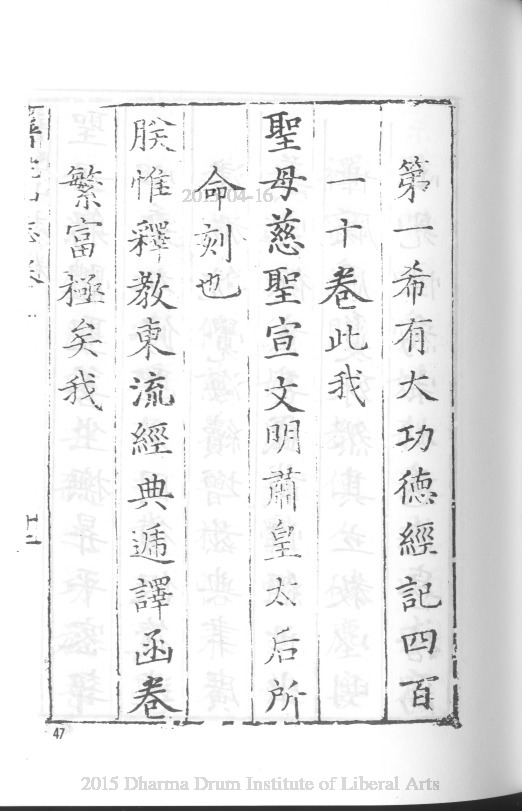 第一希有大功德經記四百
一十卷此我
聖母慈聖宣文明肅皇太后所
命刻也
朕惟釋教東流經典遞譯函卷
繁富極矣我
十二
47
2015-04-16
2015 Dharma Drum Institute of Liberal Arts